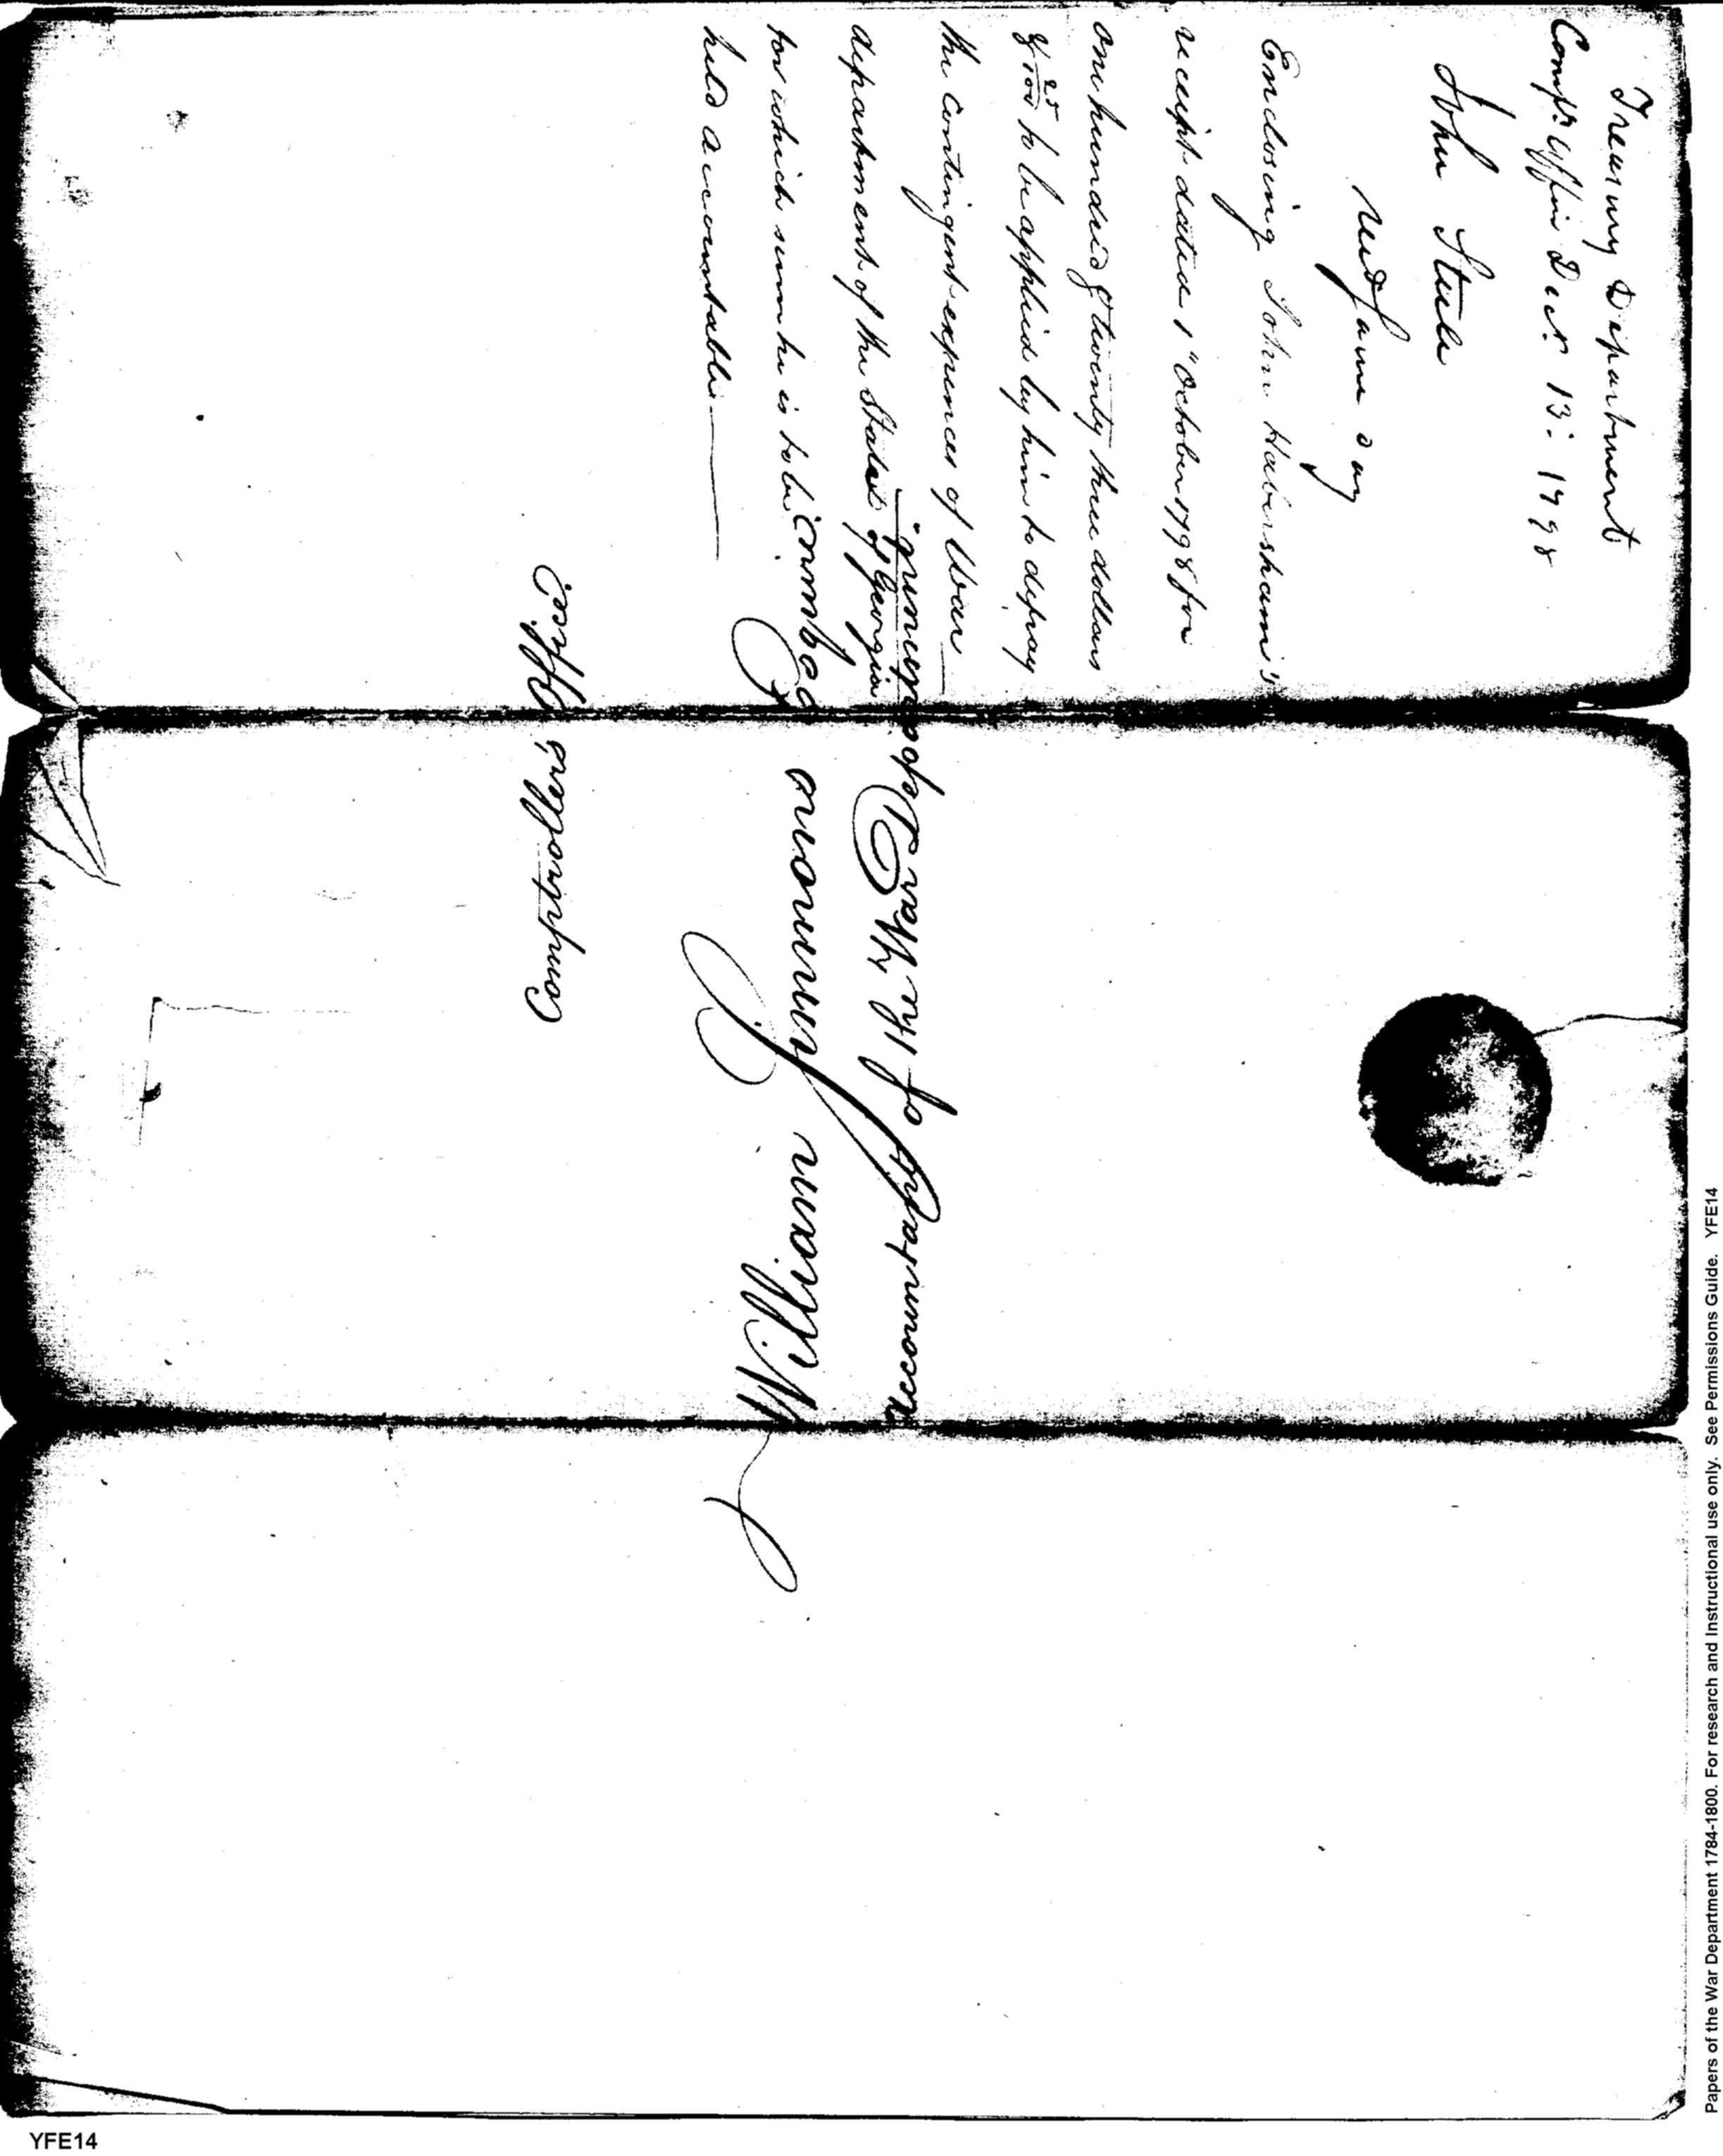 Treasury Department
Compt.s Office Decr. 13: 1798
John Steele
recd same day
Enclosing John Habersham's
receipt dated 1st October 1798 for
one hundred & twenty three dollars
& 25/100 to be applied by him to defray
the contingent expences of War
department of the State of Georgia
for which sum he is to be
held accountable
William Simmons Esquire
Accountant of the War Department
Comptrollers Office
Papers of the War Department 1784-1800. For research and Instructional use only. See Permissions Guide. YFE14
YFE14